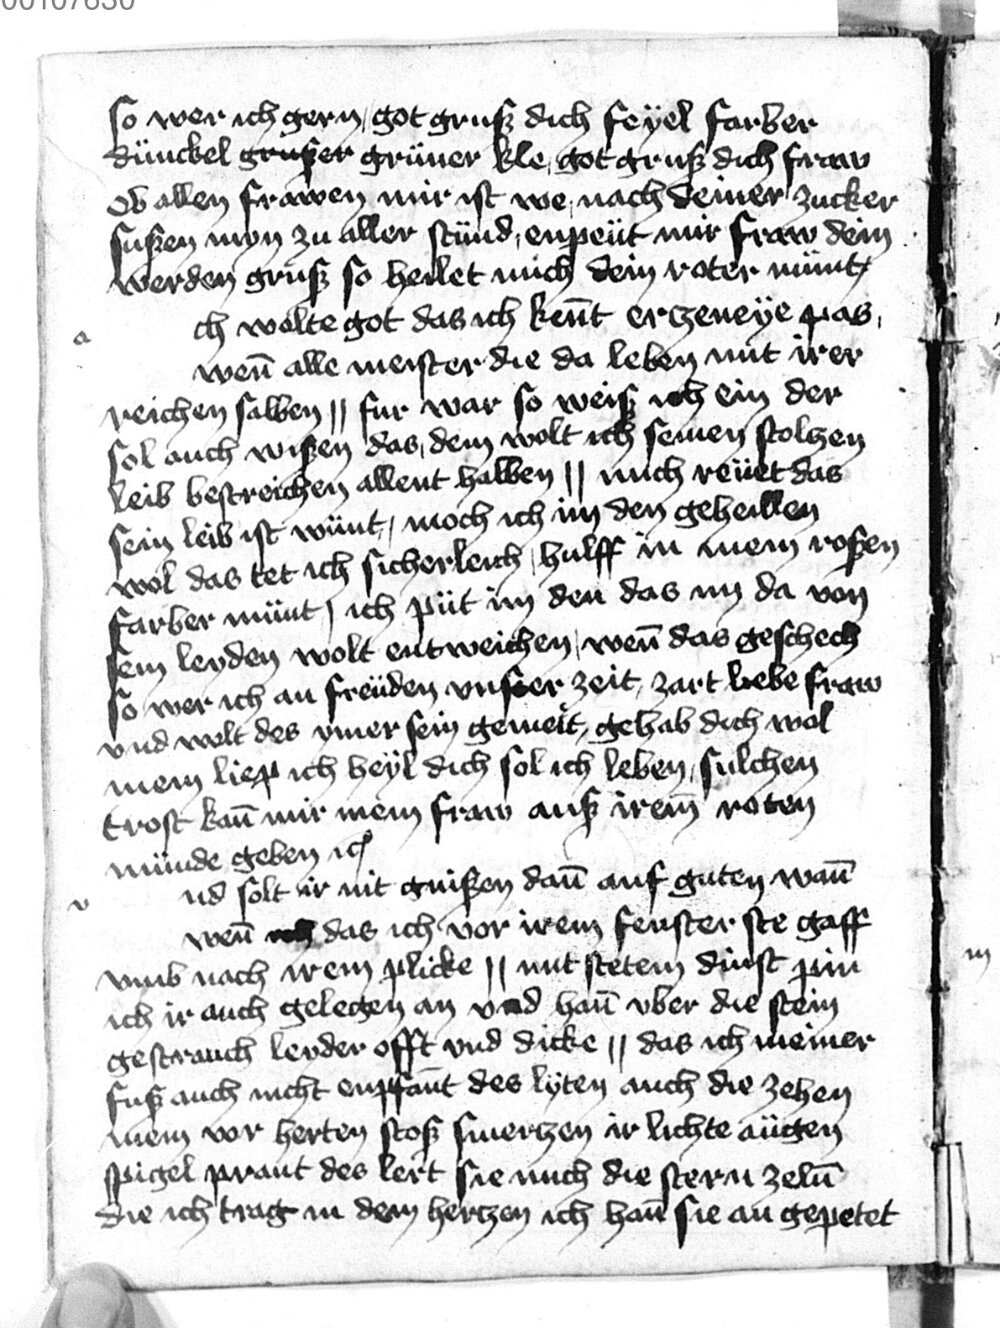 00107630
so wer ich gern / got gruß dich feÿel farber
dünckel gruser grüner kle / got gruß dich fraw
ob allen frawen mir ist we / nach deiner zucker
sußen mon zu aller stünd / enpeüt mir fraw dein
werden gruß so heilet mich dein roter münt /
a ch wolte got das ich ken̄t erczeneye pas /
wen̄ alle meister die da leben mit irer
reichen salben // fur war so weiß ich ein der
sol auch wißen das / dem wolt ich seinen stolczen
leib bestreichen allent halben // mich reüet das
sein leib ist wünt / moch ich im den geheillen
wol das tet ich sicherleich / hulff in mein roßen
farber münt / ich püt im den das im da von
sein leyden wolt entweichen / wen̄ das geschech
so wer ich an freüden vnser zeit / zart liebe fraw
vnd wolt des ymer sein gemeit / gehab dich wol
mein liep ich heyl dich sol ich leben / sülchen
trost kan̄ mir mein fraw auß irem roten
münde geben ich
v nd solt ir nit gnißen dan̄ auf guten wan̄
wen̄ das ich vor irem fenster ste gaff
vmb nach irem plicke // mit stetem dinst pin
ich ir auch gelegen an vnd han̄ vber die stein
gestrauch leyder offt vnd dicke // das ich meiner
fuß auch nicht enpfan̄t des lyten auch die zehen
mein vor herten stoß smerczen ir lichte aügen
spigel praut des lert sie mich die stern zeln̄
die ich trag in dem herczen ich han̄ sie an gepetet